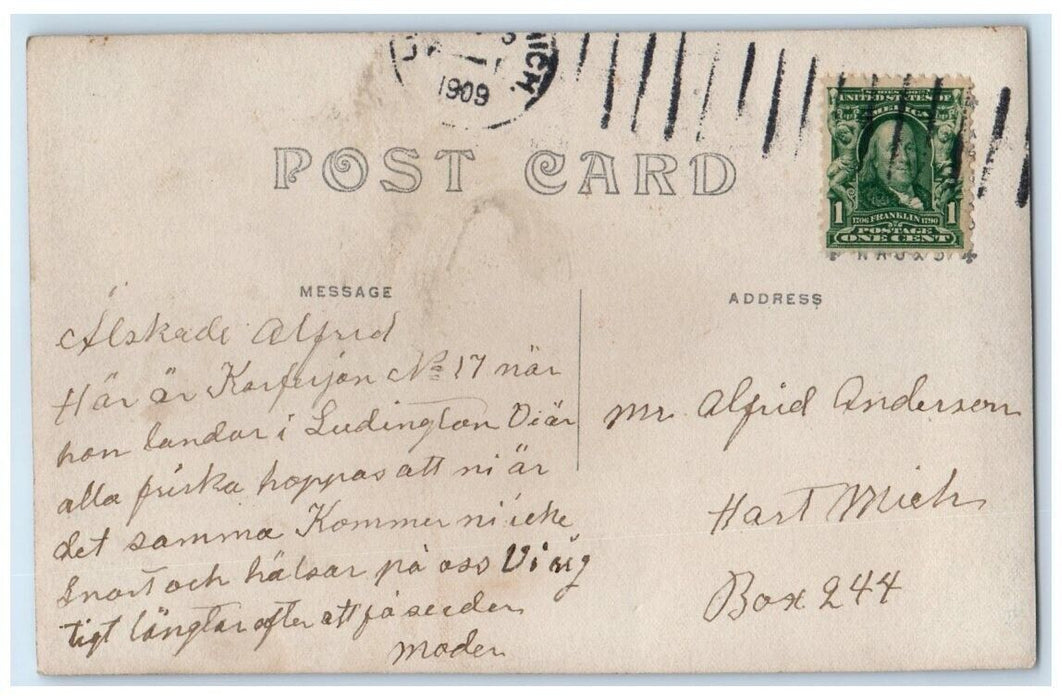 MICH.
1909
UNITED STATES OF
AMERICA
1 1
1706 FRANKLIN 1790
POSTAGE
ONE CENT
POST CARD
MESSAGE
ADDRESS
Älskade Alfred
Här är Karferjan No 17 när
hon landar i Ludington Vi är
alla friska hoppas att ni är
det samma Kommer ni icke
Snart och hälsar på oss Vi
längtar efter att få se eder
Moder
Mr. Alfrid Anderson
Hart Mich
Box 244